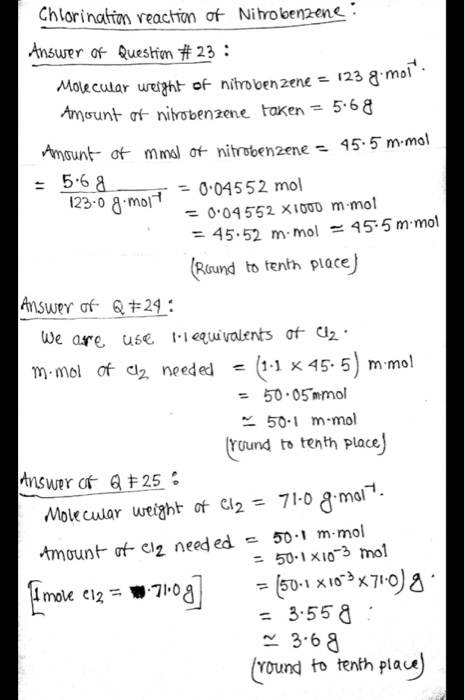 Chlorination reaction of Nitrobenzene :
Answer of Question # 23 :
Molecular weight of nitrobenzene = 123 g·mol⁻¹.
Amount of nitrobenzene taken = 5.6 g
Amount of mmol of nitrobenzene = 45.5 m·mol
= 5.6 g / 123.0 g·mol⁻¹ = 0.04552 mol
= 0.04552 × 1000 m·mol
= 45.52 m·mol ≃ 45.5 m·mol
(Round to tenth place)
Answer of Q # 24 :
We are use 1.1 equivalents of Cl2.
m·mol of Cl2 needed = (1.1 × 45.5) m·mol
= 50.05 m·mol
≃ 50.1 m·mol
(round to tenth place)
Answer of Q # 25 :
Molecular weight of Cl2 = 71.0 g·mol⁻¹.
Amount of Cl2 needed = 50.1 m·mol
= 50.1 × 10⁻³ mol
[1 mole Cl2 = 71.0 g] = (50.1 × 10⁻³ × 71.0) g.
= 3.55 g
≃ 3.6 g
(round to tenth place)